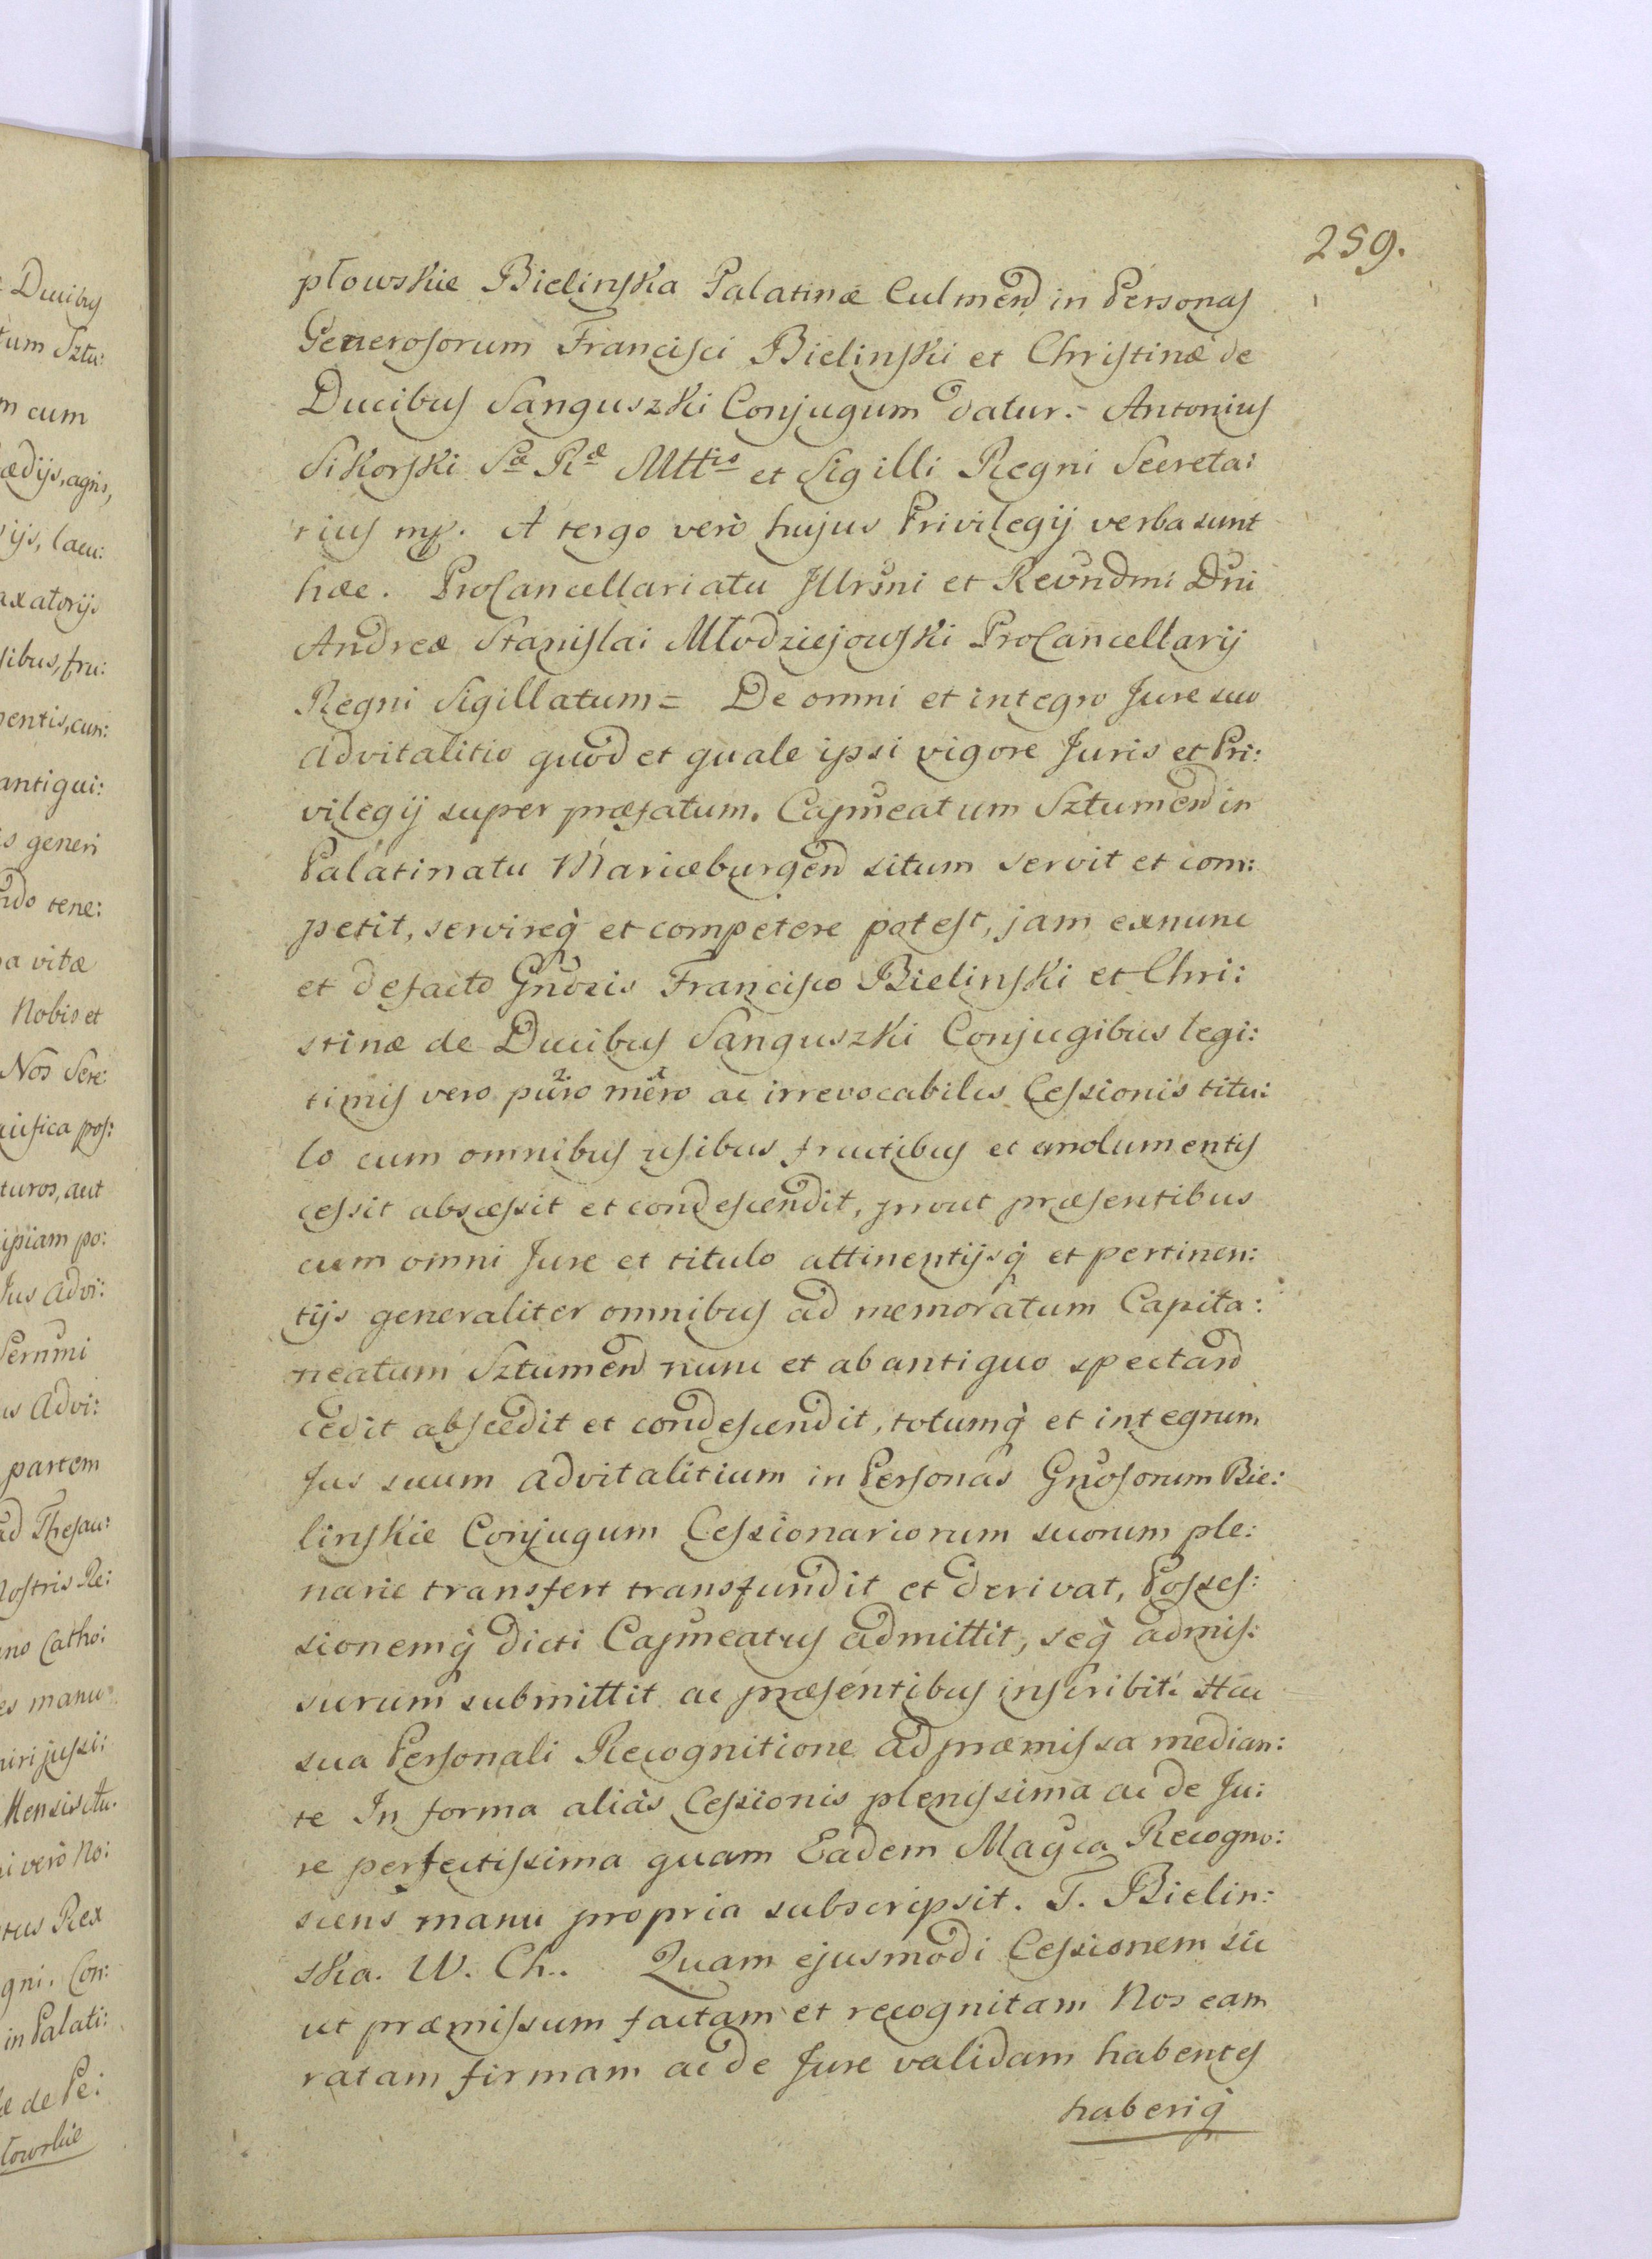 259.
płowskie Bielinska Palatinæ Culmen̄ in Personas
Generosorum Francisci Bielinski et Christinæ de
Ducibus Sanguszki Conjugum datur.- Antonius
Sikorski Sæ Ræ Mttis et Sigilli Regni Secreta:
rius mp. A tergo verò hujus Privilegij verba sunt
hæc. ProCancellariatu Illrsni et Revndmi Dni
Andreæ Stanislai Młodziejowski ProCancellarij
Regni Sigillatum = De omni et integro Jure suo
advitalitio quod et quale ipsi vigore Juris et Pri:
vilegij super præfatum. Capneatum Sztumen̄ in
Palatinatu Mariæburgen̄ situm servit et com:
petit, servireq̀ et competere potest, jam exnunc
et defacto Gnosis Francisco Bielinski et Chri:
stinæ de Ducibus Sanguszki Conjugibus legi:
timis vero puro mero ac irrevocabilis Cessionis titu:
lo cum omnibus usibus fructibus et emolumentis
cessit abscessit et condescendit, prout præsentibus
cum omni Jure et titulo attinentijsq̀ et pertinen:
tijs generaliter omnibus ad memoratum Capita:
neatum Sztumen̄ nunc et ab antiquo spectan̄
cedit abscedit et condescendit, totumq̀ et integrum
Jus suum advitalitium in Personas Gnosorum Bie:
linskie Conjugum Cessionariorum suorum ple:
narie transfert transfundit et derivat, Posses:
sionemq̀ dicti Capneatus admittit, seq̀ admis:
surum submittit ac præsentibus inscribit. Hac
sua Personali Recognitione ad præmissa median:
te In forma aliàs Cessionis plenissima ac de Ju:
re perfectissima quam Eadem Magca Recogno:
scens manu propria subscripsit. T. Bielin:
ska. W. Ch.. Quam ejusmodi Cessionem sic
ut præmissum factam et recognitam Nos eam
ratam firmam ac de Jure validam habentes
haberiq̀